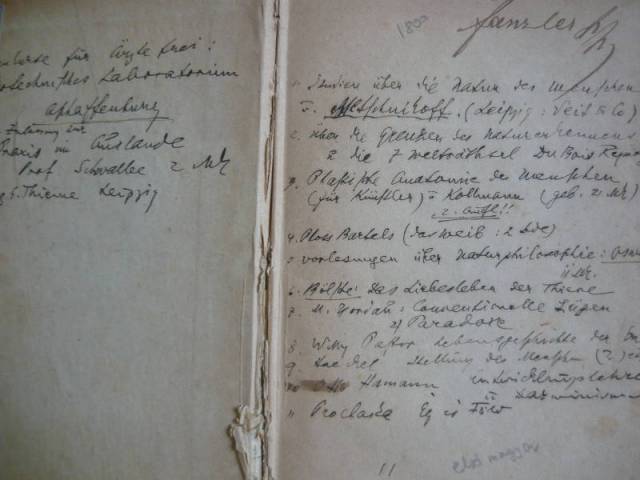 für Ärzte frei:
Laboratorium
Aschaffenburg
Zulassung zur
Praxis im Auslande
Prof Schwalbe 2 Mk
G. Thieme Leipzig
180
1. Studien über die Natur des Menschen
v. Metschnikoff. (Leipzig: Veit & Co)
2. über die Grenzen des Naturerkennens
2 die 7 welträthsel Du Bois Reym
3. Plastische Anatomie des Menschen
(für Künstler) v Kollmann (geb. 21 Mk)
2. Aufl!!
4. Ploss Bartels (das Weib: 2 Bde)
5 vorlesungen über Naturphilosophie: Ostw
6. Bölsche: Das Liebesleben der Thiere
7. M. Nordau: Conventionelle Lügen
2) Paradoxe
8. Willy Pastor Lebensgeschichte der
9 Haeckel Stellung des Menschen
10 Otto Hamann Entwicklungslehre
u Darwinismus
11 Prochaska Ég és Föld
11
első magyar